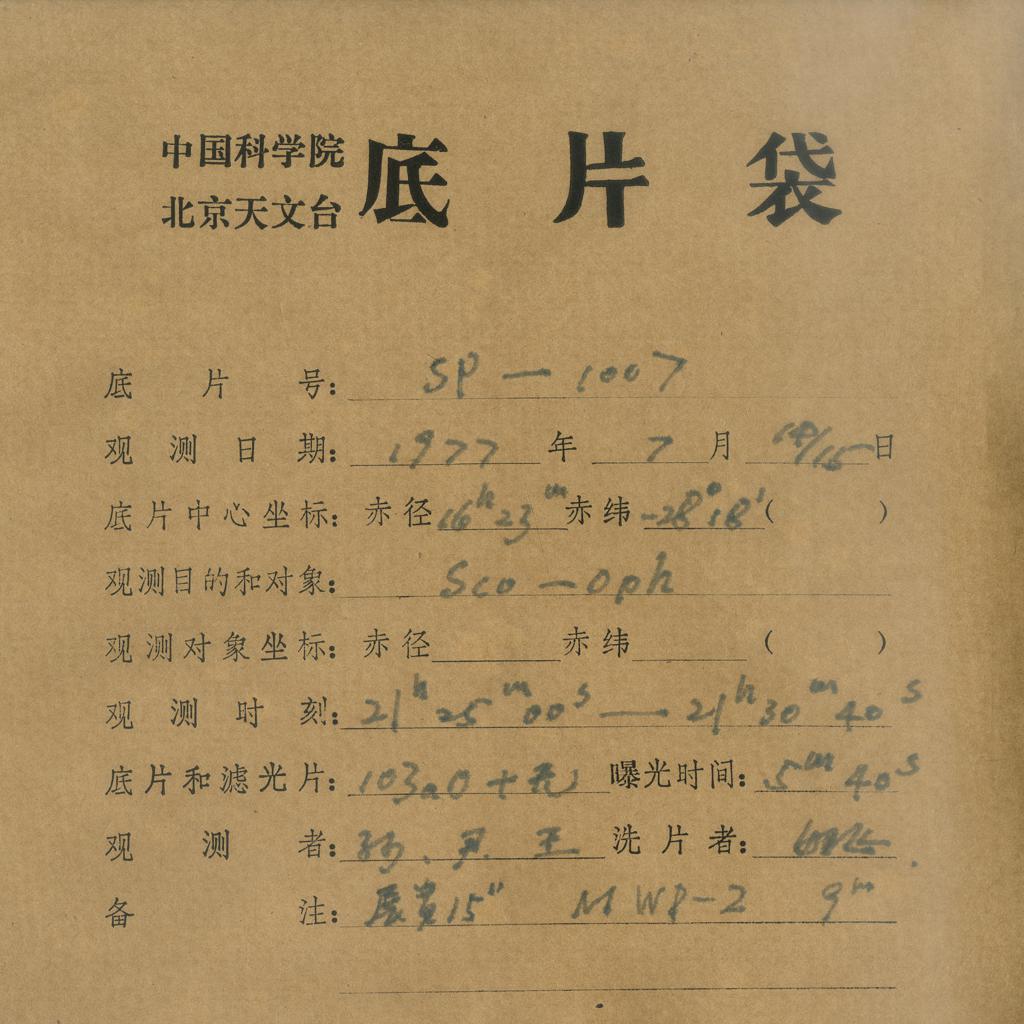 中国科学院
北京天文台
底片袋
底片号: SP — 1007
观测日期: 1977 年 7 月 14/15 日
底片中心坐标: 赤径 16h 23m 赤纬 -28°18' ( )
观测目的和对象: Sco — Oph
观测对象坐标: 赤径 赤纬 ( )
观测时刻: 21h 25m 00s — 21h 30m 40s
底片和滤光片: 103aO + 曝光时间: 5m 40s
观测者: 、尹、王 洗片者:
备注: 展宽15" MWP-2 9m